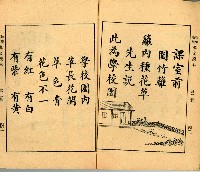 課室前
圍竹籬
籬內種花草
先生說
此為學校園
學校園內
草長花開
草色青
花色不一
有紅 有白
有紫 有黃